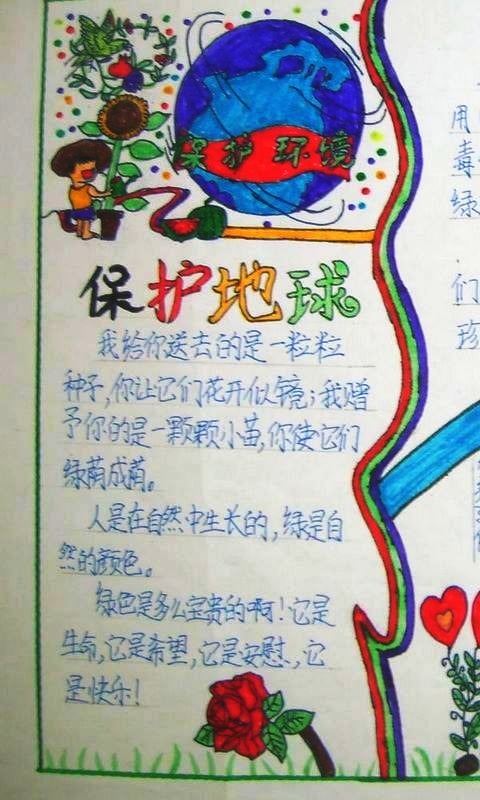 保护环境
保护地球
我给你送去的是一粒粒
种子,你让它们花开似镜;我赠
予你的是一颗颗小苗,你使它们
绿荫成荫。
人是在自然中生长的,绿是自
然的颜色。
绿色是多么宝贵的啊!它是
生命,它是希望,它是安慰,它
是快乐!
用
毒
绿
们
珍